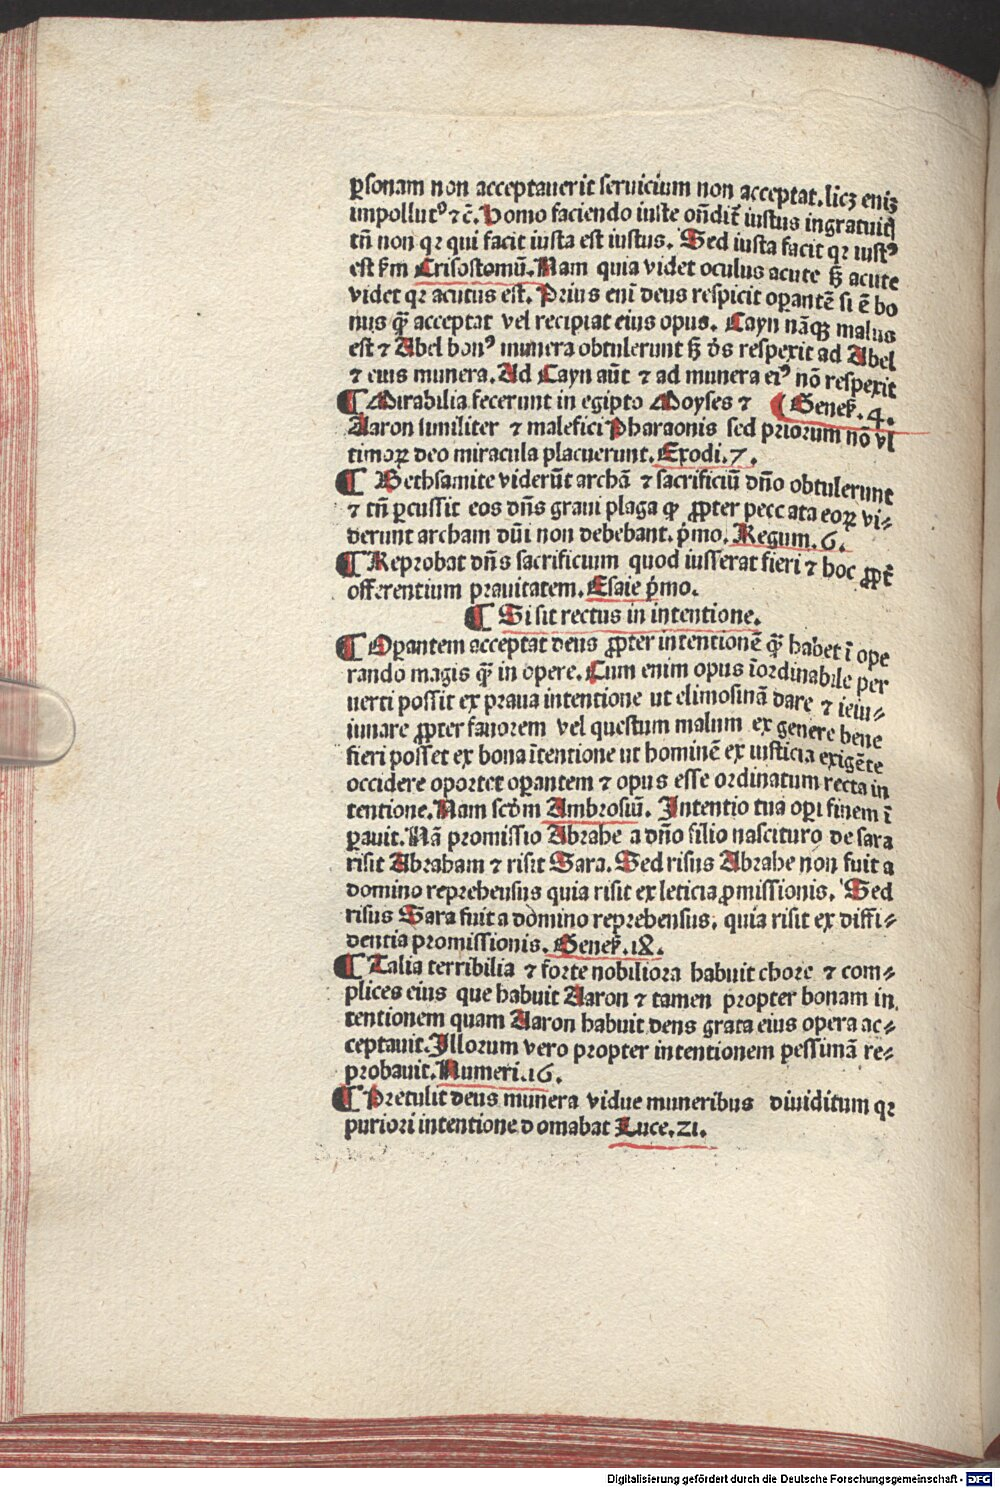 ꝑsonam non acceptauerit seruicium non acceptat. licꝫ enīꝫ
impollutꝰ ⁊ c̄. Homo faciendo iuste ondit iustus ingratuit
tn̄ non qꝛ qui facit iusta est iustus. Sed iusta facit qꝛ iustꝰ
est ẜm Crisostomū. Nam quia videt oculus acute sꝫ acute
videt qꝛ acutus est. Prius eni deus respicit oꝑantē si ē bo
nus qͣꝫ acceptat vel recipiat eius opus. Cayn nāqꝫ malus
est ⁊ Abel bonꝰ munera obtulerunt sꝫ dn̄s respexit ad Abel
⁊ eius munera. Ad Cayn aūt ⁊ ad munera eiꝰ nō respexit
¶ Mirabilia fecerunt in egipto Moyses ⁊ ( Geneẜ. 4.
Aaron similiter ⁊ malefici Pharaonis sed priorum nō vl
timoꝝ deo miracula placuerunt. Exodi. 7.
¶ Bethsamite viderūt archā ⁊ sacrificiū dño obtulerunt
⁊ tn̄ ꝑcussit eos dn̄s graui plaga qꝫ ꝓpter peccata eoꝝ vi⸗
derunt archam dn̄i non debebant. p̄mo. Regum. 6.
¶ Reprobat dn̄s sacrificium quod iusserat fieri ⁊ hoc ꝓpt̄
offerentium prauitatem. Esaie p̄mo.
¶ Si sit rectus in intentione.
¶ Oꝑantem acceptat deus ꝓpter intentionē qͣꝫ habet ī ope
rando magis qͣꝫ in opere. Cum enim opus īordinabile per
uerti possit ex praua intentione ut elimosinā dare ⁊ ieiu⸗
iunare ꝓpter fauorem vel questum malum ex genere bene
fieri posset ex bona ītentione ut hominē ex iusticia exigēte
occidere oportet oꝑantem ⁊ opus esse ordinatum recta in
tentione. Nam scd̄m Ambrosiū. Intentio tua oꝑi finem ī
ꝑauit. Nā promissio Abrahe a dño filio nascituro de sara
risit Abraham ⁊ risit Sara. Sed risus Abrahe non fuit a
domino reprehensus quia risit ex leticia ꝓmissionis. Sed
risus Sara fuit a domino reprehensus, quia risit ex diffi⸗
dentia promissionis. Geneẜ. 18.
¶ Talia terribilia ⁊ forte nobiliora habuit chore ⁊ com⸗
plices eius que habuit Aaron ⁊ tamen propter bonam in
tentionem quam Aaron habuit deus grata eius opera ac⸗
ceptauit. Illorum vero propter intentionem pessimā re⸗
probauit. Numeri. 16.
¶ Pretulit deus munera vidue muneribus diuiditum qꝛ
puriori intentione domabat Luce. 21.
Digitalisierung gefördert durch die Deutsche Forschungsgemeinschaft - DFG